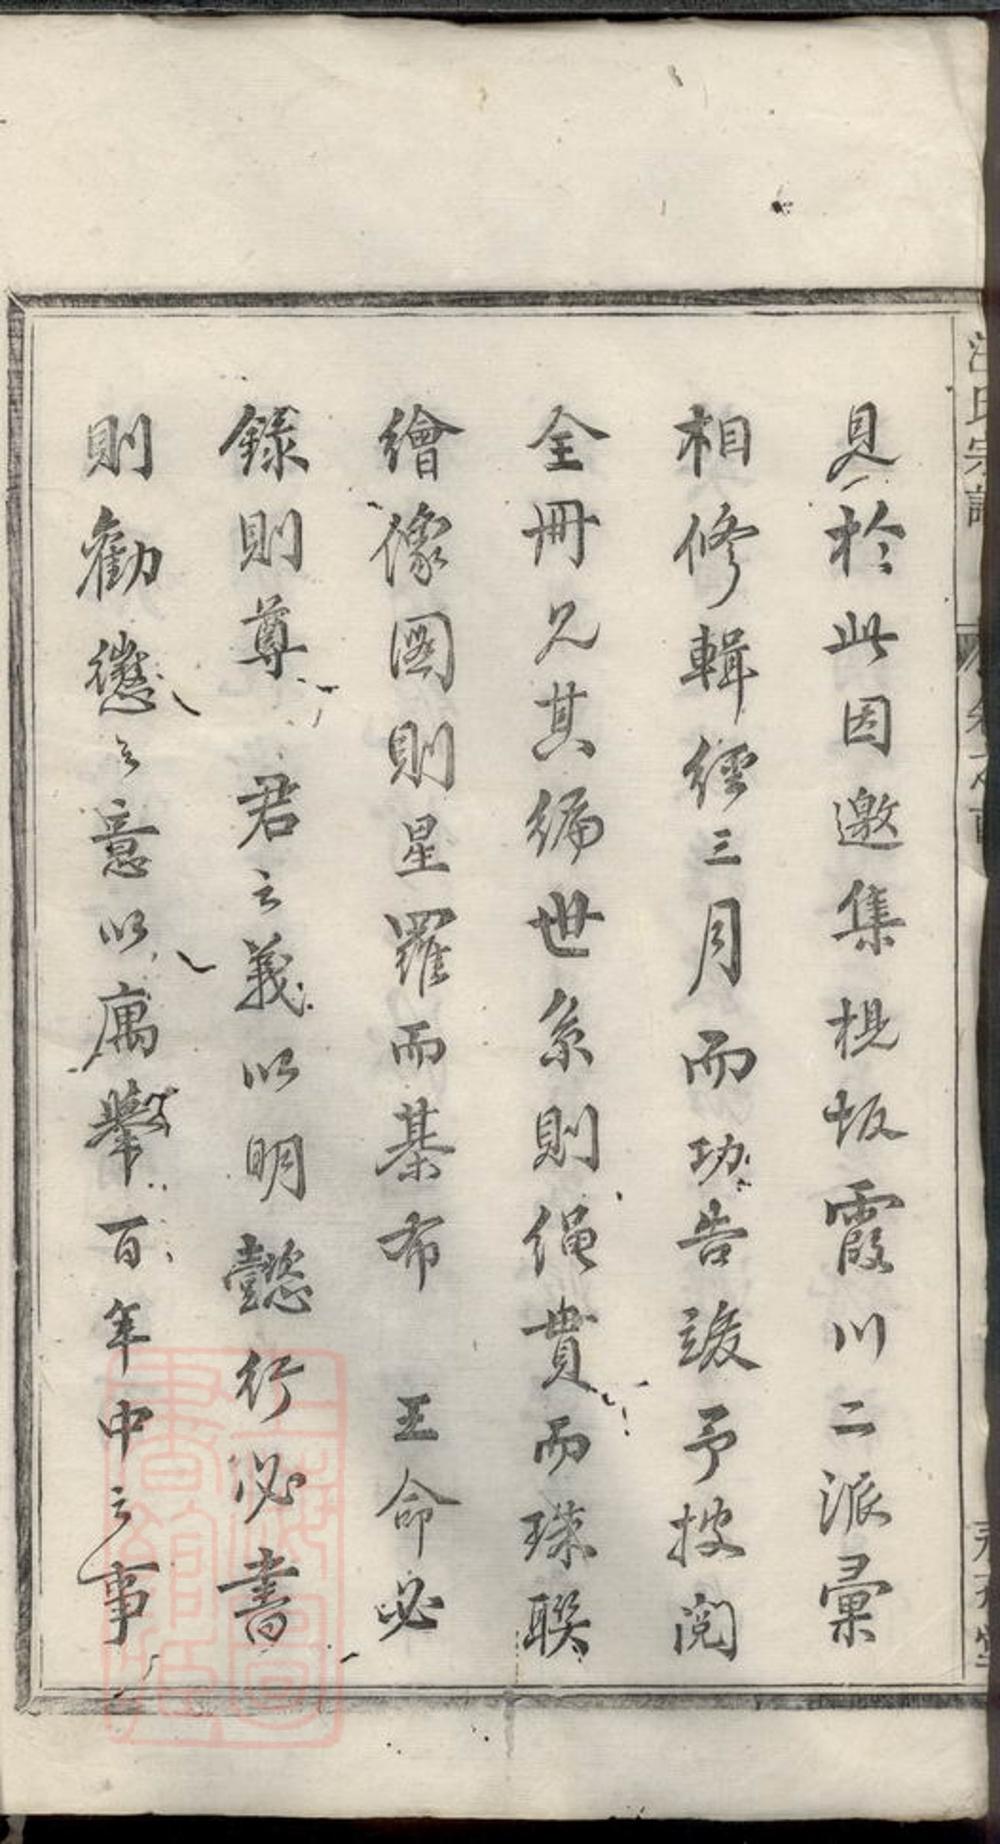 見於此因邀集梘坂霞川二派彙
相修輯經三月而功告竣予披閱
全冊見其編世系則繩貫而珠聯
繪像圖則星羅而棊布　王命必
錄則尊　君之義以明懿行必書
則勸懲之意以寓舉百年中之事
氏宗譜